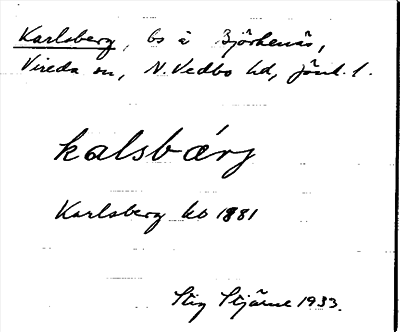 Karlsberg, bs å Björkenäs,
Vireda sn, N. Vedbo hd, Jönk. l.
kalsbærj
Karlsberg kb 1881
Stig Stjärne 1933.